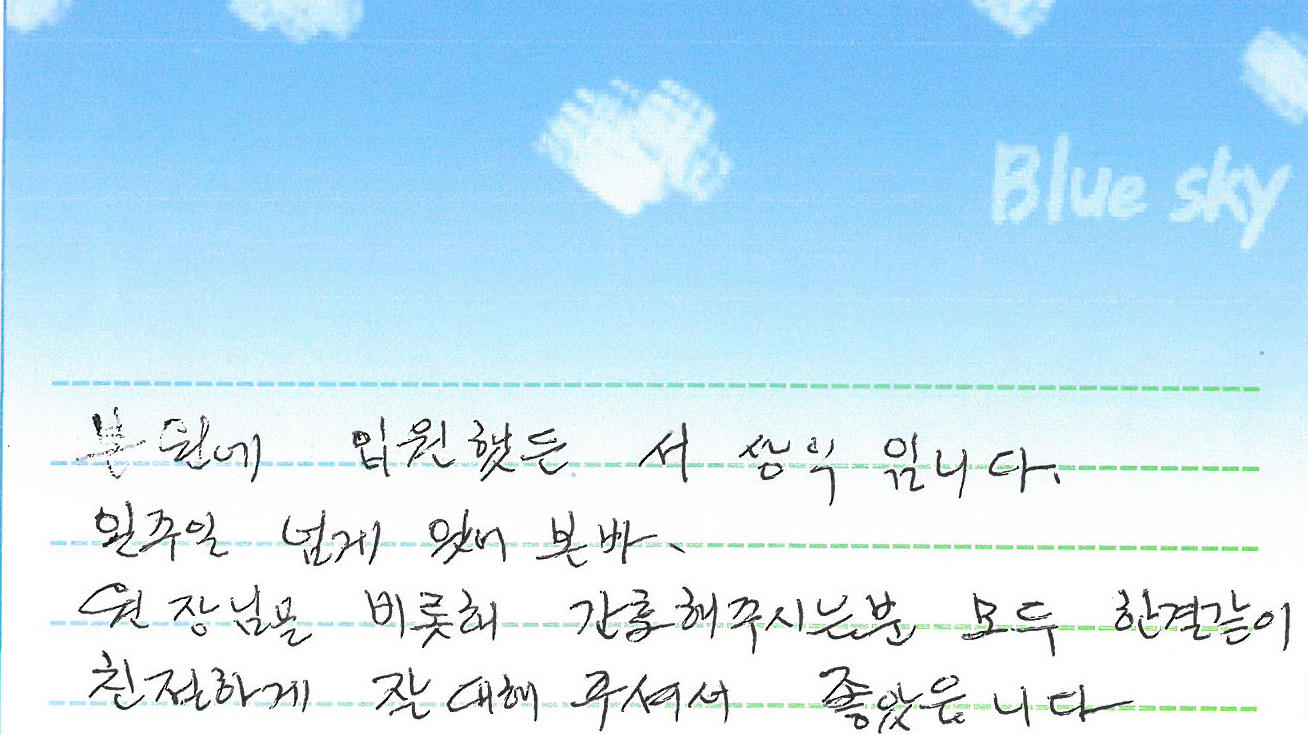 Blue sky
본원에 입원했든 서상익 입니다.
일주일 넘게 있어 본바、
원장님을 비롯해 간호해주시는분 모두 한결같이
친절하게 잘 대해 주셔서 좋았읍니다